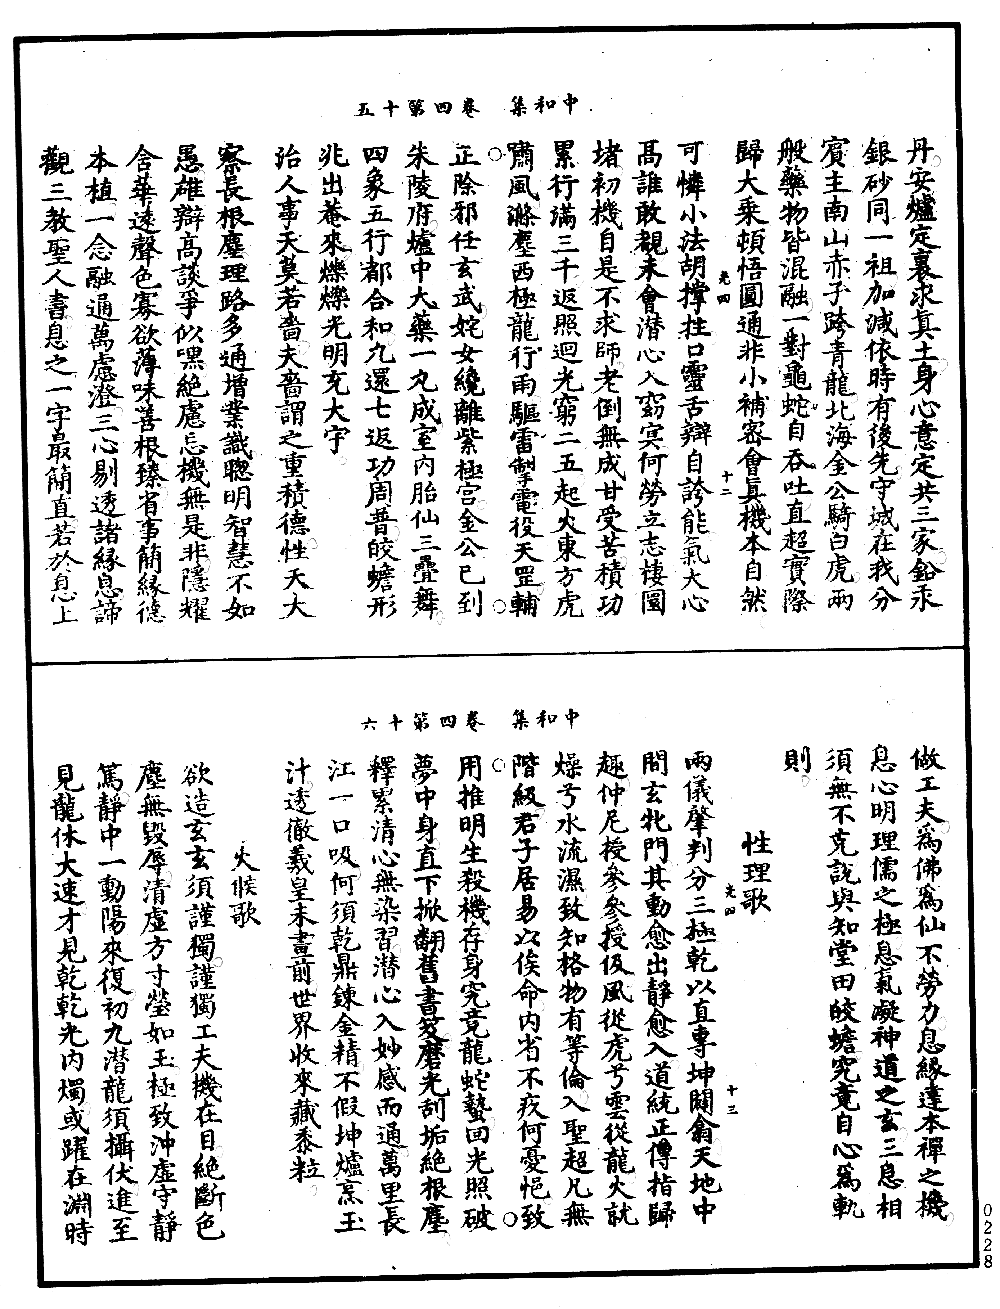 中和集　卷四第十五
丹安爐定裏求眞土身心意定共三家鉛汞
銀砂同一祖加減依時有後先守城在我分
賓主南山赤子跨青龍北海金公騎白虎兩
般藥物皆混融一對龜蛇自吞吐直超實際
歸大乘頓悟圓通非小補密會眞機本自然
光四　十二
可憐小法胡撑拄口靈舌辯自誇能氣大心
高誰敢覷未會潜心入窈冥何勞立志棲圜
堵初機自是不求師老倒無成甘受苦積功
累行滿三千返照迴光窮二五起火東方虎
嘯風滌塵西極龍行雨驅雷掣電役天罡輔
正除邪任玄武姹女纔離紫極宫金公已到
朱陵府爐中大藥一丸成室内胎仙三疊舞
四象五行都合和九還七返功周普皎蟾形
兆出菴來爍爍光明充大宇
治人事天莫若嗇夫嗇謂之重積德性天大
察長根塵理路多通增業識聰明智慧不如
愚雄辯高談爭似嘿絶慮忘機無是非隱耀
含華遠聲色寡欲薄味善根臻省事簡緣德
本植一念融通萬慮澄三心剔透諸緣息諦
觀三教聖人書息之一字最簡直若於息上
中和集　卷四第十六
做工夫爲佛爲仙不勞力息緣達本禪之機
息心明理儒之極息氣凝神道之玄三息相
須無不克說與知堂田皎蟾究竟自心爲軌
則
性理歌
兩儀肇判分三極乾以直專坤闢翕天地中
光四　十三
間玄牝門其動愈出靜愈入道統正傳指歸
趣仲尼授參參授伋風從虎兮雲從龍火就
燥兮水流濕致知格物有等倫入聖超凡無
階級君子居易以俟命内省不疚何憂悒致
用推明生殺機存身究竟龍蛇蟄回光照破
夢中身直下掀翻舊書笈磨光刮垢絶根塵
釋累清心無染習潜心入妙感而通萬里長
江一口吸何須乾鼎鍊金精不假坤爐烹玉
汁透徹羲皇未畫前世界收來藏黍粒
火候歌
欲造玄玄須謹獨謹獨工夫機在目絶斷色
塵無毀辱清虛方寸瑩如玉極致沖虛守靜
篤靜中一動陽來復初九潜龍須攝伏進至
見龍休大速才見乾乾光内燭或躍在淵時
0228